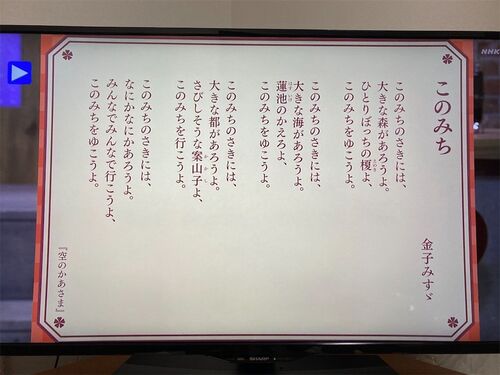 このみち
金子みすゞ
このみちのさきには、
大きな森があろうよ。
ひとりぼっちの榎よ、
このみちをゆこうよ。
このみちのさきには、
大きな海があろうよ。
蓮池のかえろよ、
このみちをゆこうよ。
このみちのさきには、
大きな都があろうよ。
さびしそうな案山子よ、
このみちを行こうよ。
このみちのさきには、
なにかなにかあろうよ。
みんなでみんなで行こうよ、
このみちをゆこうよ。
『空のかあさま』
NHK
SHARP